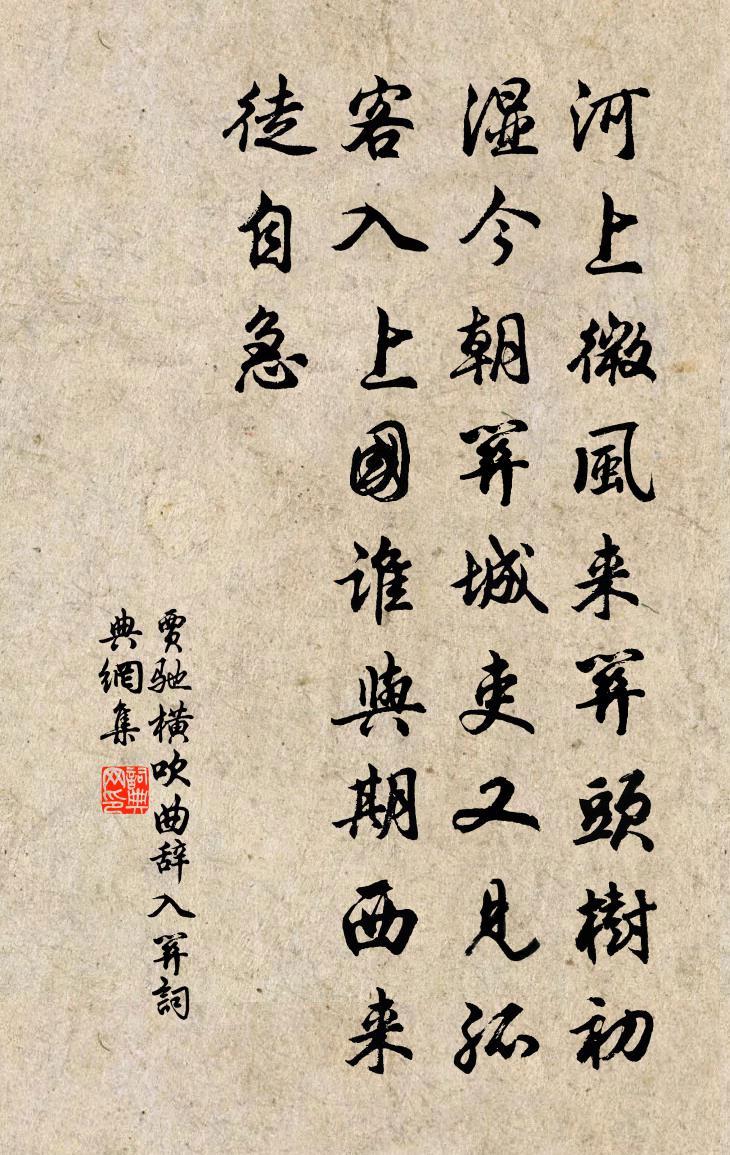 河上微風来關頭樹初
湿今朝關城吏又見孤
客入上國誰與期西来
徒自急
賈馳橫吹曲辞入關詞
典網集
詞典
网印